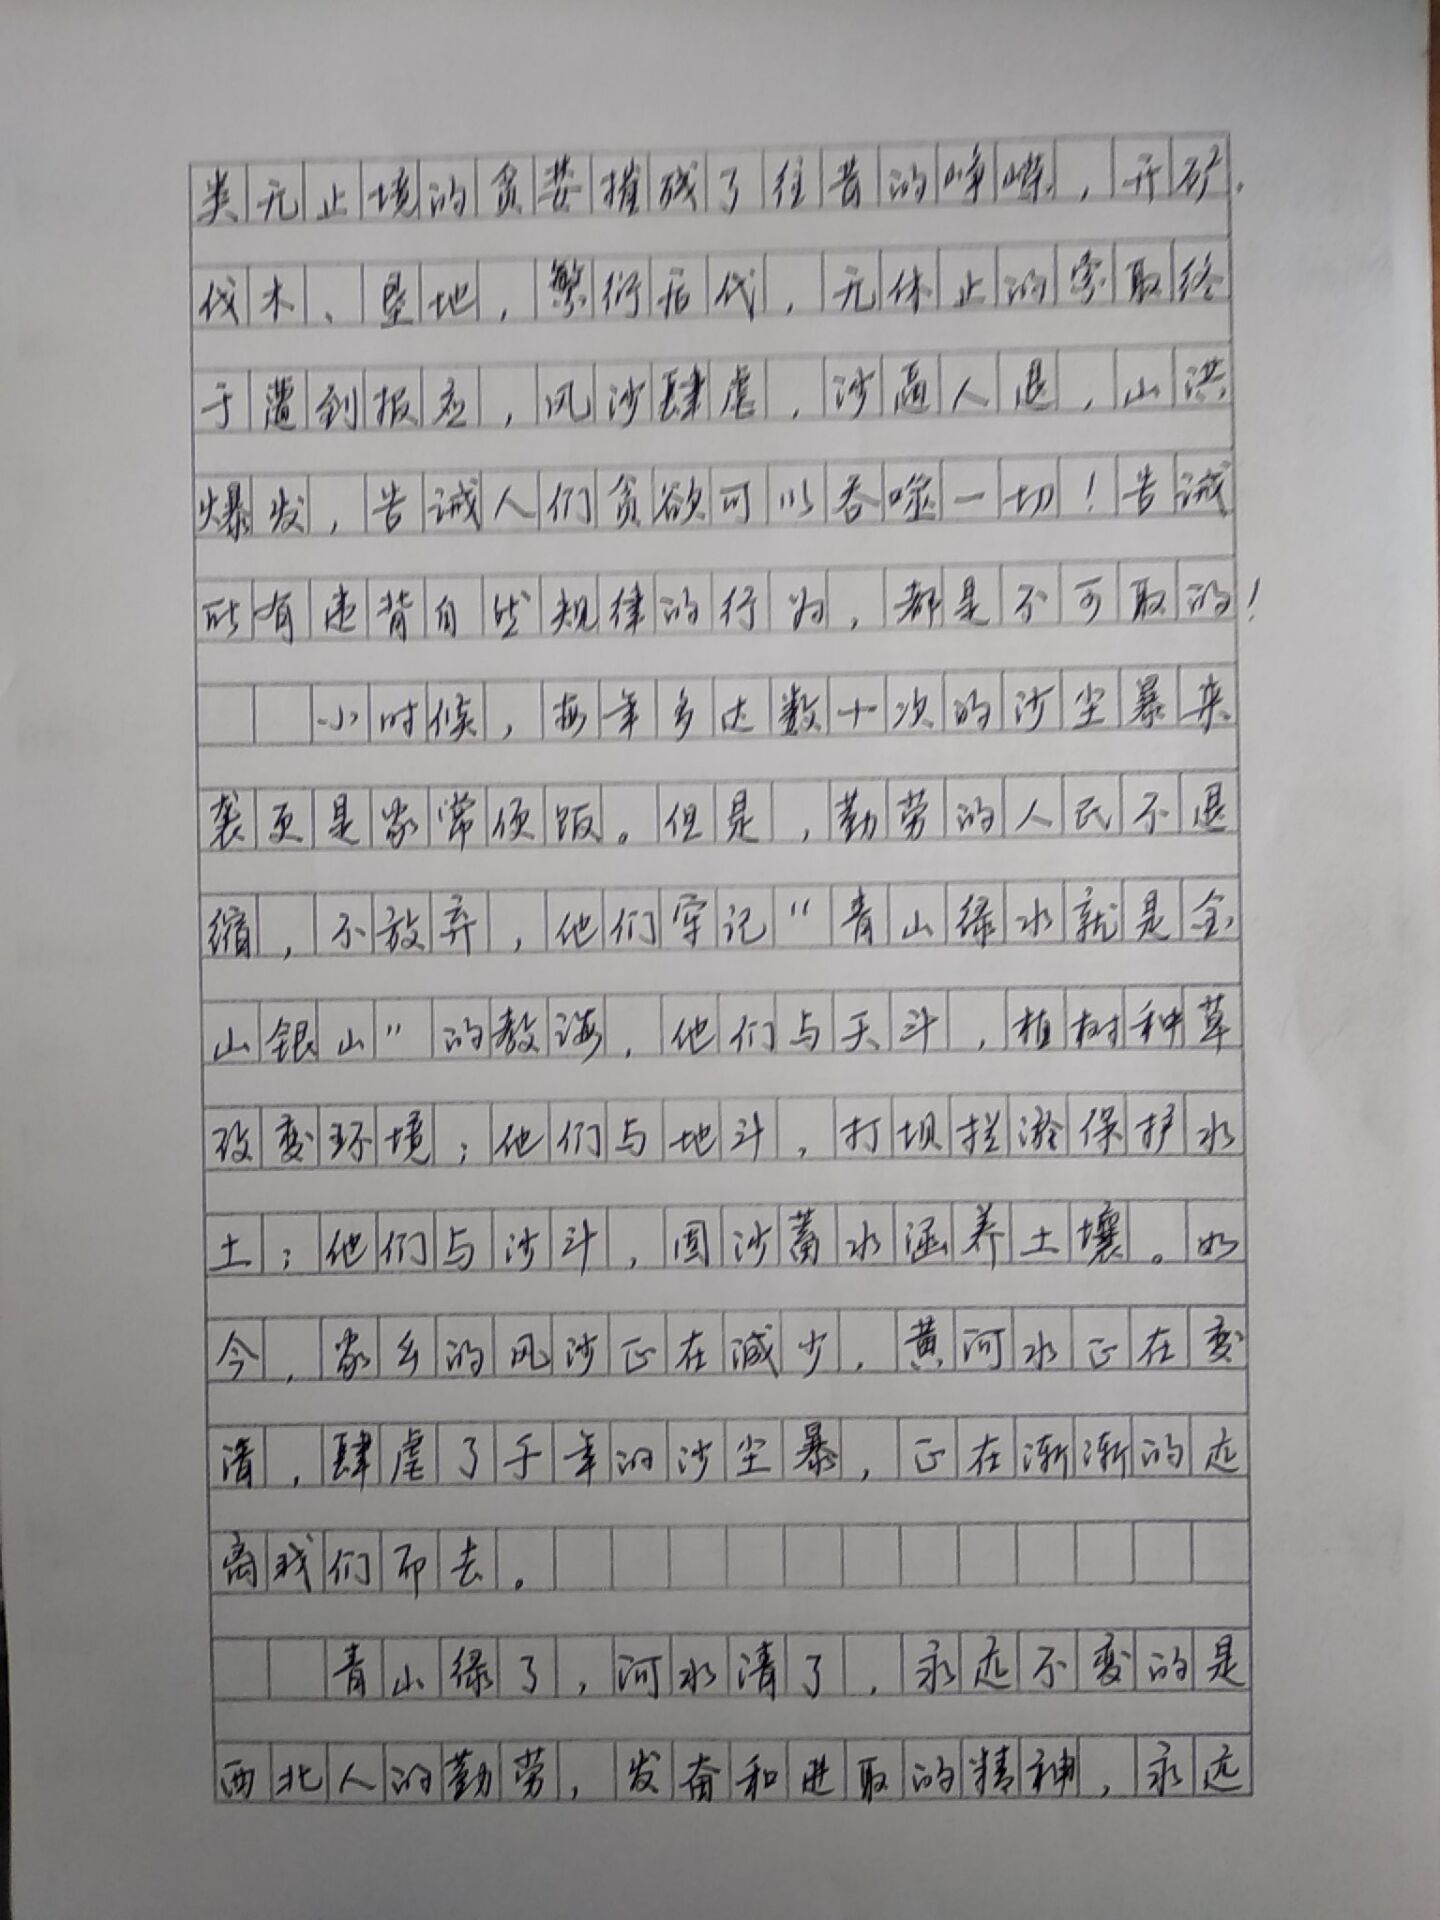 类无止境的贪婪摧残了往昔的峥嵘，开矿、
伐木、垦地，繁衍后代，无休止的索取终
于遭到报应，风沙肆虐，沙逼人退，山洪
爆发，告诫人们贪欲可以吞噬一切！告诫
所有违背自然规律的行为，都是不可取的！
小时候，每年多达数十次的沙尘暴来
袭更是家常便饭。但是，勤劳的人民不退
缩，不放弃，他们牢记“青山绿水就是金
山银山”的教诲，他们与天斗，植树种草
改变环境；他们与地斗，打坝拦淤保护水
土；他们与沙斗，固沙蓄水涵养土壤。如
今，家乡的风沙正在减少，黄河水正在变
清，肆虐了千年的沙尘暴，正在渐渐的远
离我们而去。
青山绿了，河水清了，永远不变的是
西北人的勤劳，发奋和进取的精神，永远